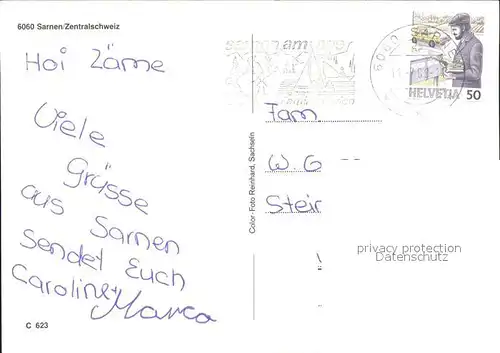 6060 Sarnen/Zentralschweiz
Hoi Zäme
Viele
Grüsse
aus Sarnen
sendet Euch
Caroline + Marca
C 623
Color-Foto Reinhard, Sachseln
sarnen am
6060
HELVETIA 50
Fam.
W. G
Steir
privacy protection
DELCAMPE